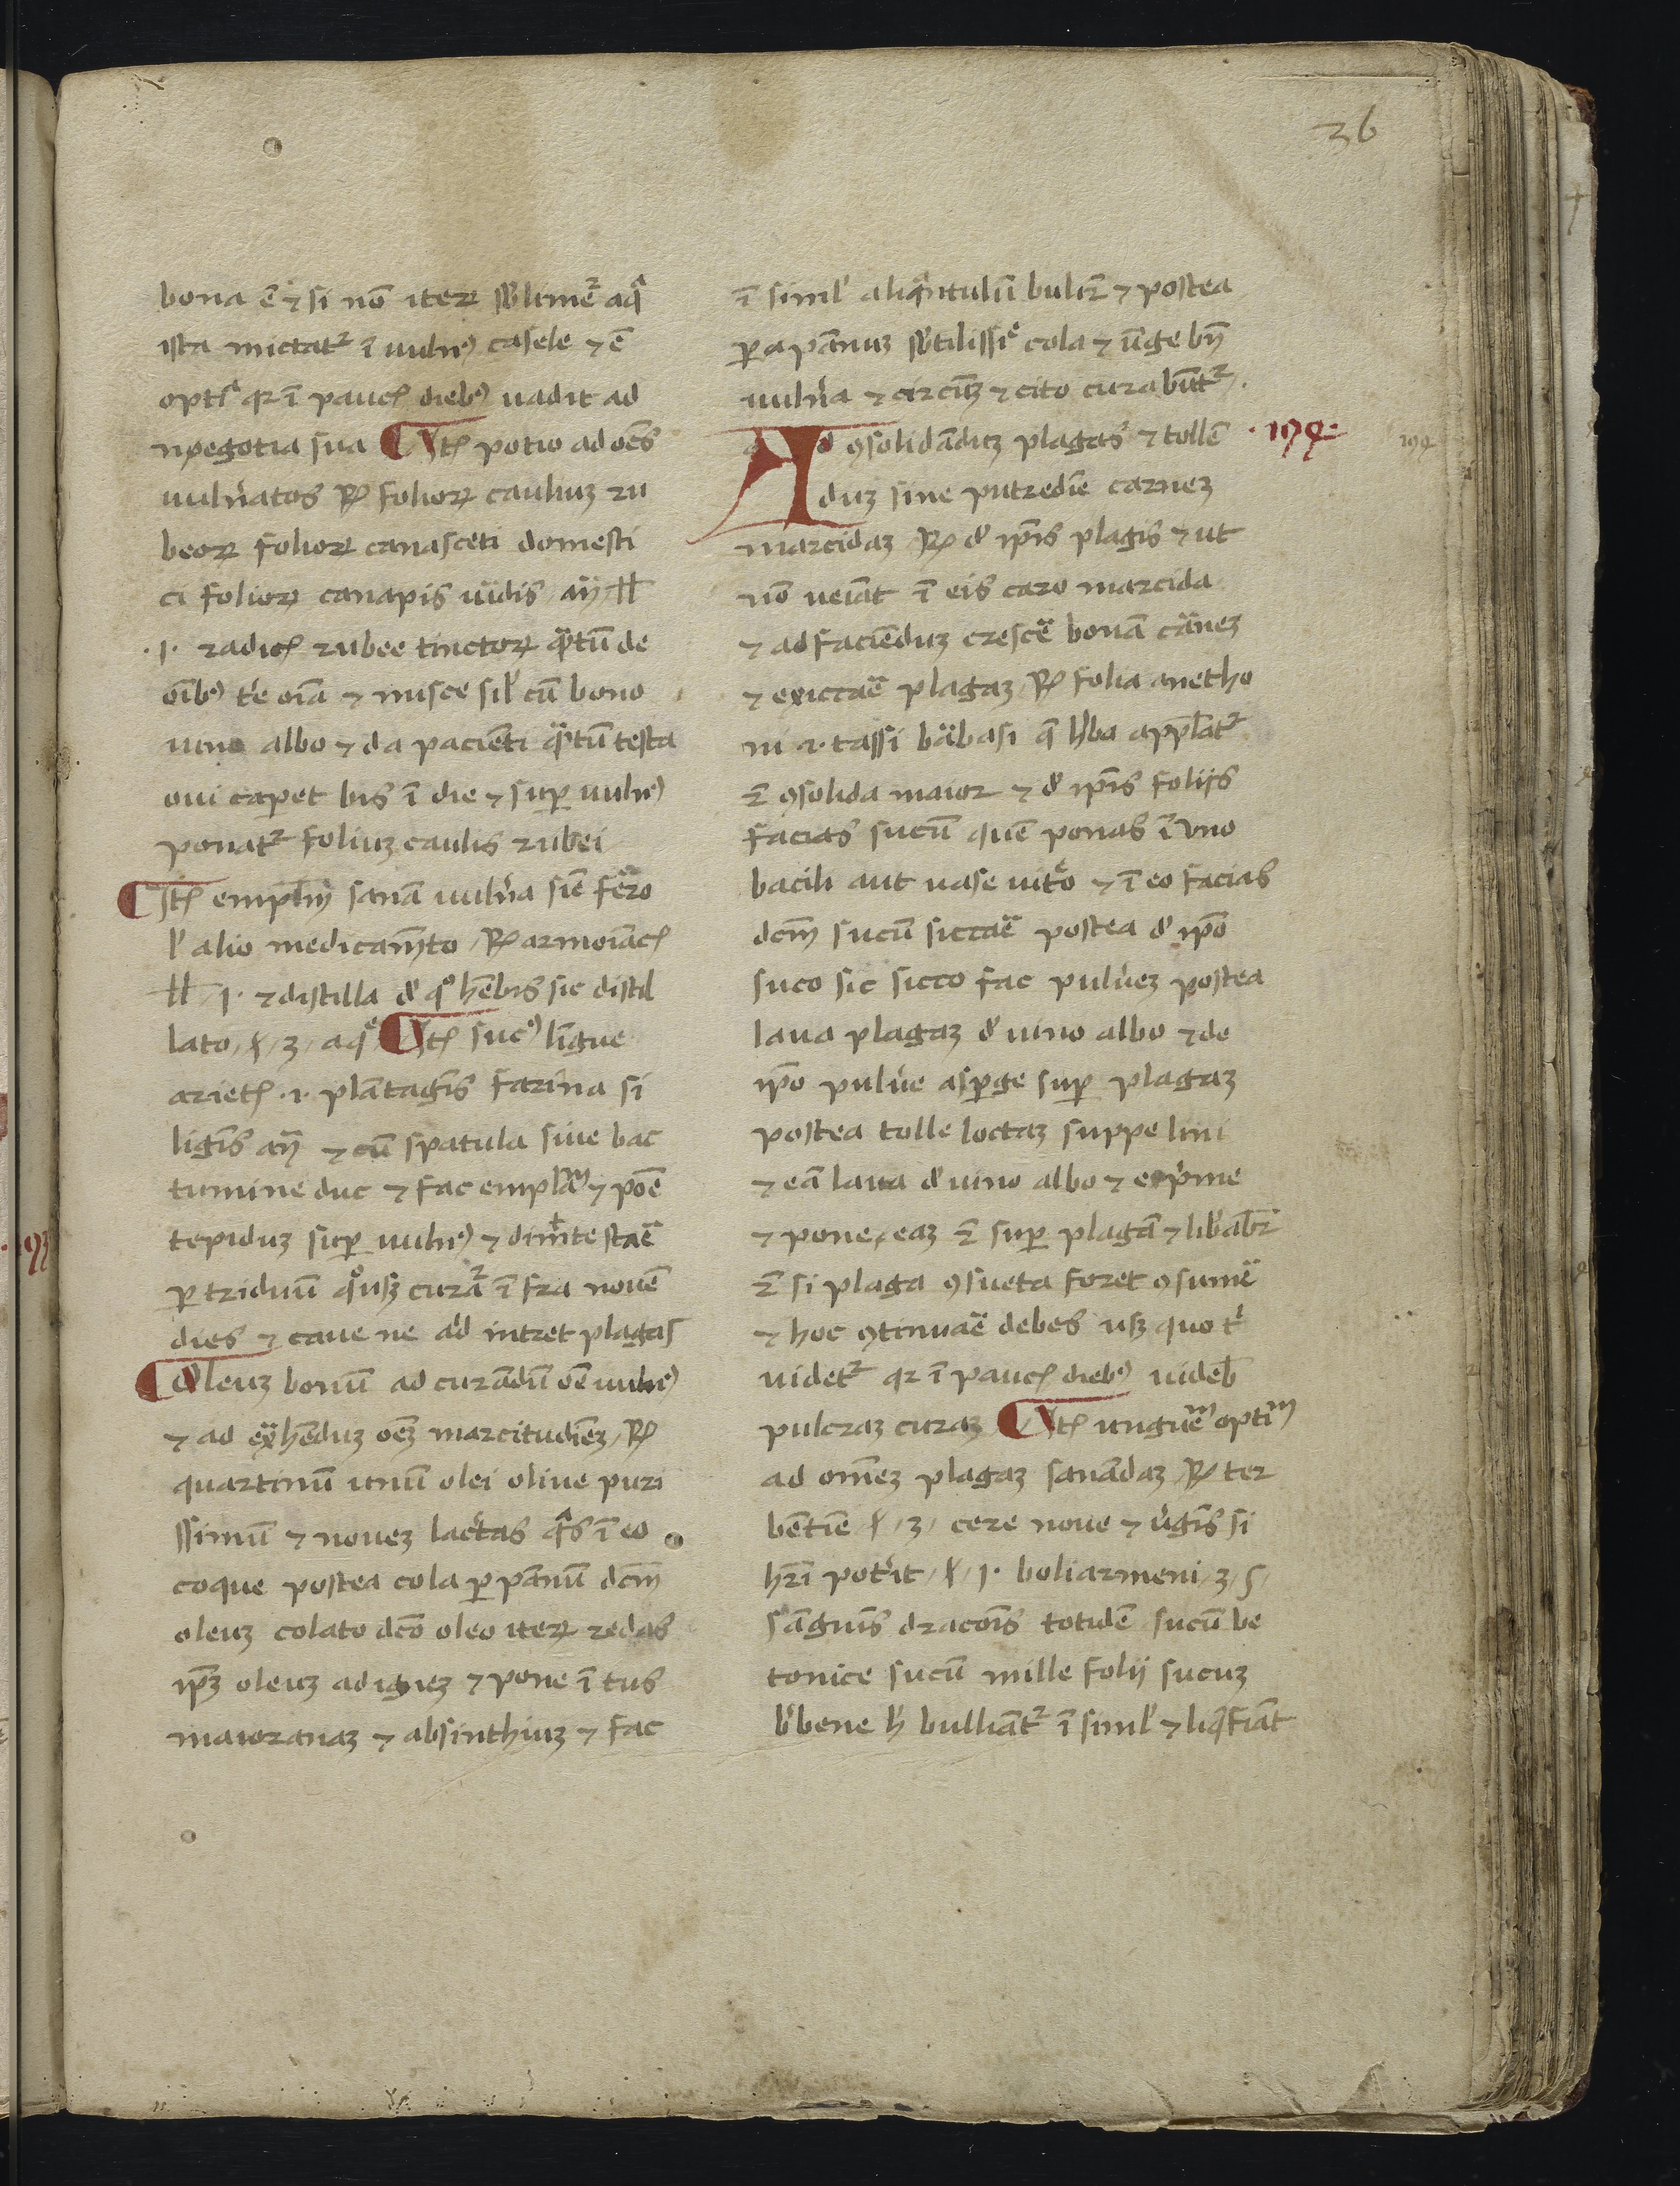 36
bona ē ⁊ si nō iteꝝ sblimeꝛ̄ aq̄
ista mictatᷣ ī uulnꝰ casele ⁊ ē
optī qꝛ ī pauc̄ diebꝰ uadit ad
negotia sua Itē potio ad oēs
uulnatos ℞ folioꝝ cauliuꝫ ru
beoꝝ folioꝝ canasceti domesti
ci folioꝝ canapis uidis añ ℔
.1. radic̄ rubee tinctoꝝ qtū de
oībꝰ te oīa ⁊ misce sil cū bono
uino albo ⁊ da pacienti qtū testa
oui capet bis ī die ⁊ suꝑ uulnꝰ
ponatᷣ foliuꝫ caulis rubei
Itē emplm̄ sanā uulna siē ferro
l alio medicamto ℞ armoiac̄
℔ 1. ⁊ distilla d qͦ hēbis sic distil
lato ℥ 3 aq̄ Itē sucꝰ līgue
ariet̄ .⁊. plātagīs farina si
ligīs añ ⁊ cū spatula siue bac
tumine duc ⁊ fac emplam ⁊ poē
tepiduꝫ suꝑ uulnꝰ ⁊ dimte staē
ꝑ triduū qͦusqꝫ curaꝛ̄ ī fra nouē
dies ⁊ caue ne ad intret plagas
Oleuꝫ bonū ad curādū oē uulnꝰ
⁊ ad exhēduꝫ oēꝫ marcitudīeꝫ ℞
quartinū unū olei oliue puri
ssimū ⁊ noueꝫ lactas qs ī eo
coque postea cola ꝑ pānū dcm̄
oleuꝫ colato dco oleo iteꝝ redas
ip̄ꝫ oleuꝫ ad igneꝫ ⁊ pone ī tus
maioranaꝫ ⁊ absinthiuꝫ ⁊ fac
ī siml aliqntulū buliꝛ̄ ⁊ postea
ꝑ a pānuꝫ sbtilissie cola ⁊ ūge bn̄
uulna ⁊ circūꝫ ⁊ cito curabūtᷣ.
Ad ꝯsolidāduꝫ plagas ⁊ tollē .194.
194
duꝫ sine putredīe carneꝫ
marcidaꝫ ℞ d ip̄is plagis ⁊ ut
nō ueiāt ī eis caro marcida
⁊ ad faciēduꝫ crescē bonā carneꝫ
⁊ exiccaē plagaꝫ ℞ folia anetho
ni ⁊. tassi babasi q̄ hba applatᷣ
ꝛ̄ ꝯsolida maior ⁊ d ip̄is folijs
facias sucū quē ponas ī uno
bacili aut uase uito ⁊ ī eo facias
dcm̄ sucū siccaē postea d ip̄o
suco sic sicco fac pulueꝫ postea
laua plagaꝫ d uino albo ⁊ de
ip̄o pulue asꝑge suꝑ plagaꝫ
postea tolle loctaꝫ suppe lini
⁊ eā laua d uino albo ⁊ exp̄me
⁊ pone eaꝫ ꝛ̄ suꝑ plagā ⁊ libabꝛ̄
ꝛ̄ si plaga ꝯsueta foret ꝯsumē
⁊ hoc ꝯtinuaē debes usqꝫ quo t
uidetᷣ qꝛ ī pauc̄ diebꝰ uideb
pulcraꝫ curaꝫ Itē unguēm optīm
ad omēꝫ plagaꝫ sanādaꝫ ℞ ter
bētīe ℥ 3 cere noue ⁊ ugīs si
hr̄i potit ℥ 1. boliarmeni ʒ ʃ
sāguīs dracōis totidē sucū be
tonice sucū mille folij sucuꝫ
bbene h bulliātᷣ ī siml ⁊ liqfiāt